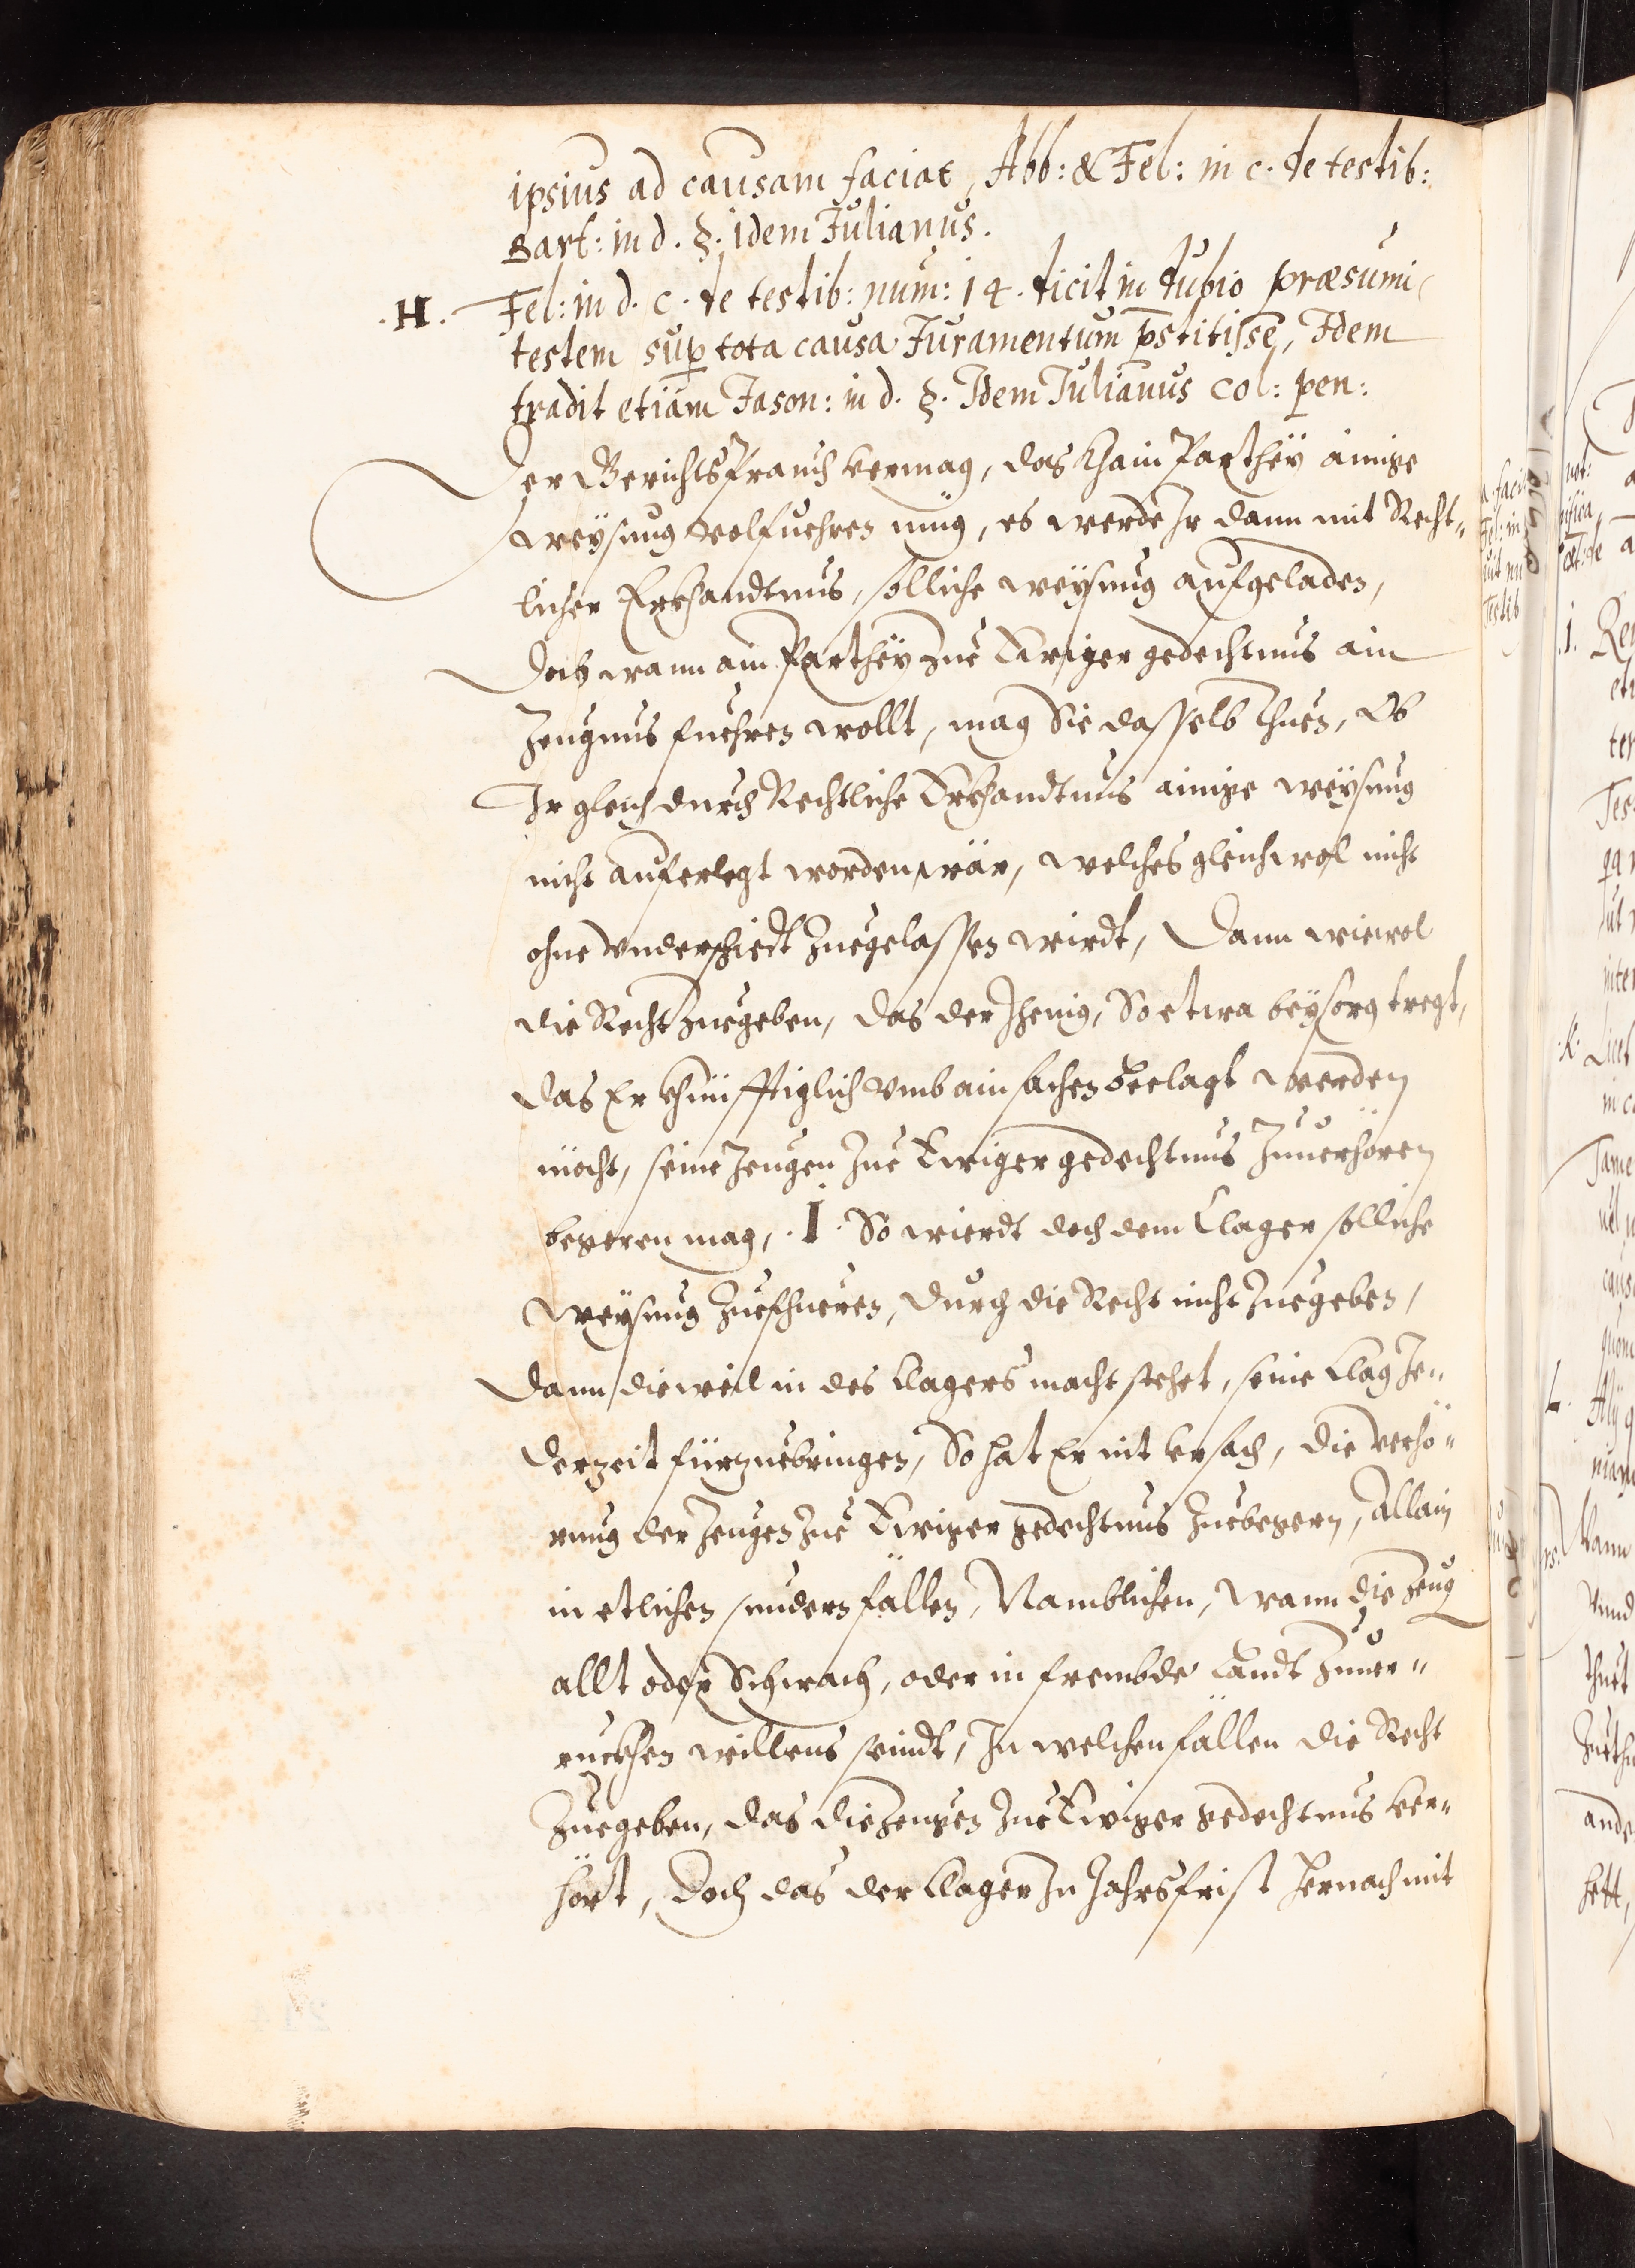 ipsius ad causam faciat, Abb: & Fel: in c. de testib:
Bart: in d. §. idem Julianus.
.H. Fel: in d. c. de testib: num: 14. dicit in dubio præsumi
testem sup tota causa Juramentum p̄stitisse, Idem
tradit etiam Jason: in d. §. Idem Julianus col: pen:
Der Gerichtsbrauch vermag, das khain Parthey ainige
weysung volfuehren müg, es werde Ir dann mit Recht„
licher Erkhandtnus, solliche weysung aufgeladen,
Doch wann ain Parthey zue Ewiger gedechtnus ain
Zeugnus fuehren wollt, mag Sie dasselb thuen, Ob
Ir gleich durch Rechtliche Erkhandtnus ainige weysung
nicht auferlegt worden wär, welches gleichwol nicht
ohne vnderschiedt zuegelassen wirdt, Dann wiewol
die Recht zuegeben, das der Jhenig, So etwa beysorg tregt,
das Er khünfftiglich vmb ain sachen beclagt werden
möcht, seine Zeugen zue Ewiger gedechtnus zuuerhören
begeren mag, .I. So wierdt doch dem Clager solliche
weysung zuefhueren, durch die Recht nicht zuegeben,
Dann dieweil in des Clagers macht stehet, seine Clag Je„
derzeit fürzuebringen, So hat Er nit vrsach, die verhö„
rung der Zeugen zue Ewiger gedechtnus zuebegern, Allain
in etlichen sundern fällen, Namblichen, wann die Zeug
allt oder Schwach, oder in frembde Landt zuuer„
ruckhen willens seindt, In welchen fällen die Recht
zuegeben, das die Zeugen zue Ewiger gedechtnus ver„
hört, Doch das der Clager In Jahrsfrist hernach mit